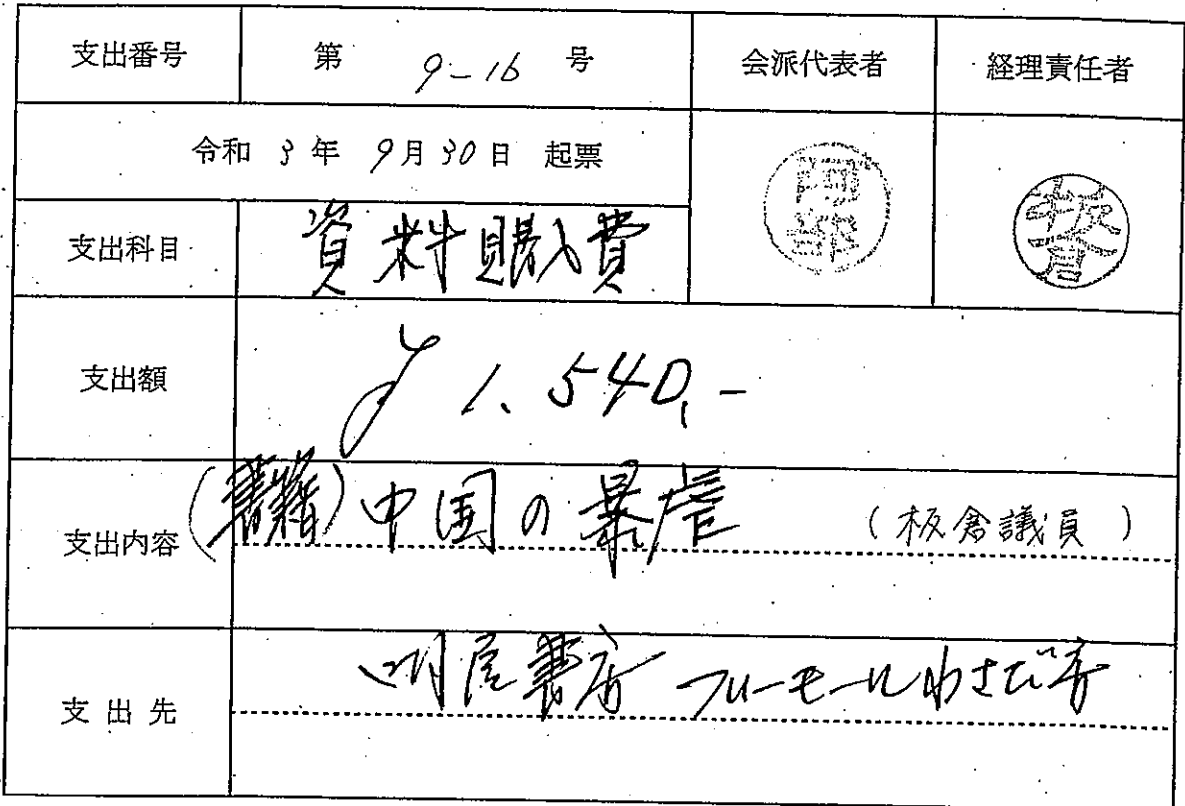 支出番号 第 9-16 号 会派代表者 経理責任者
令和 3 年 9月 30日 起票 阿部 板倉
支出科目 資料購入費
支出額 ¥1,540,-
支出内容 (書籍) 中国の暴虐 (板倉議員)
支出先 明屋書店 フリーモールわさだ店